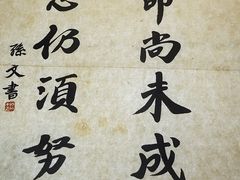 命尚未成
志仍須努
孫文書